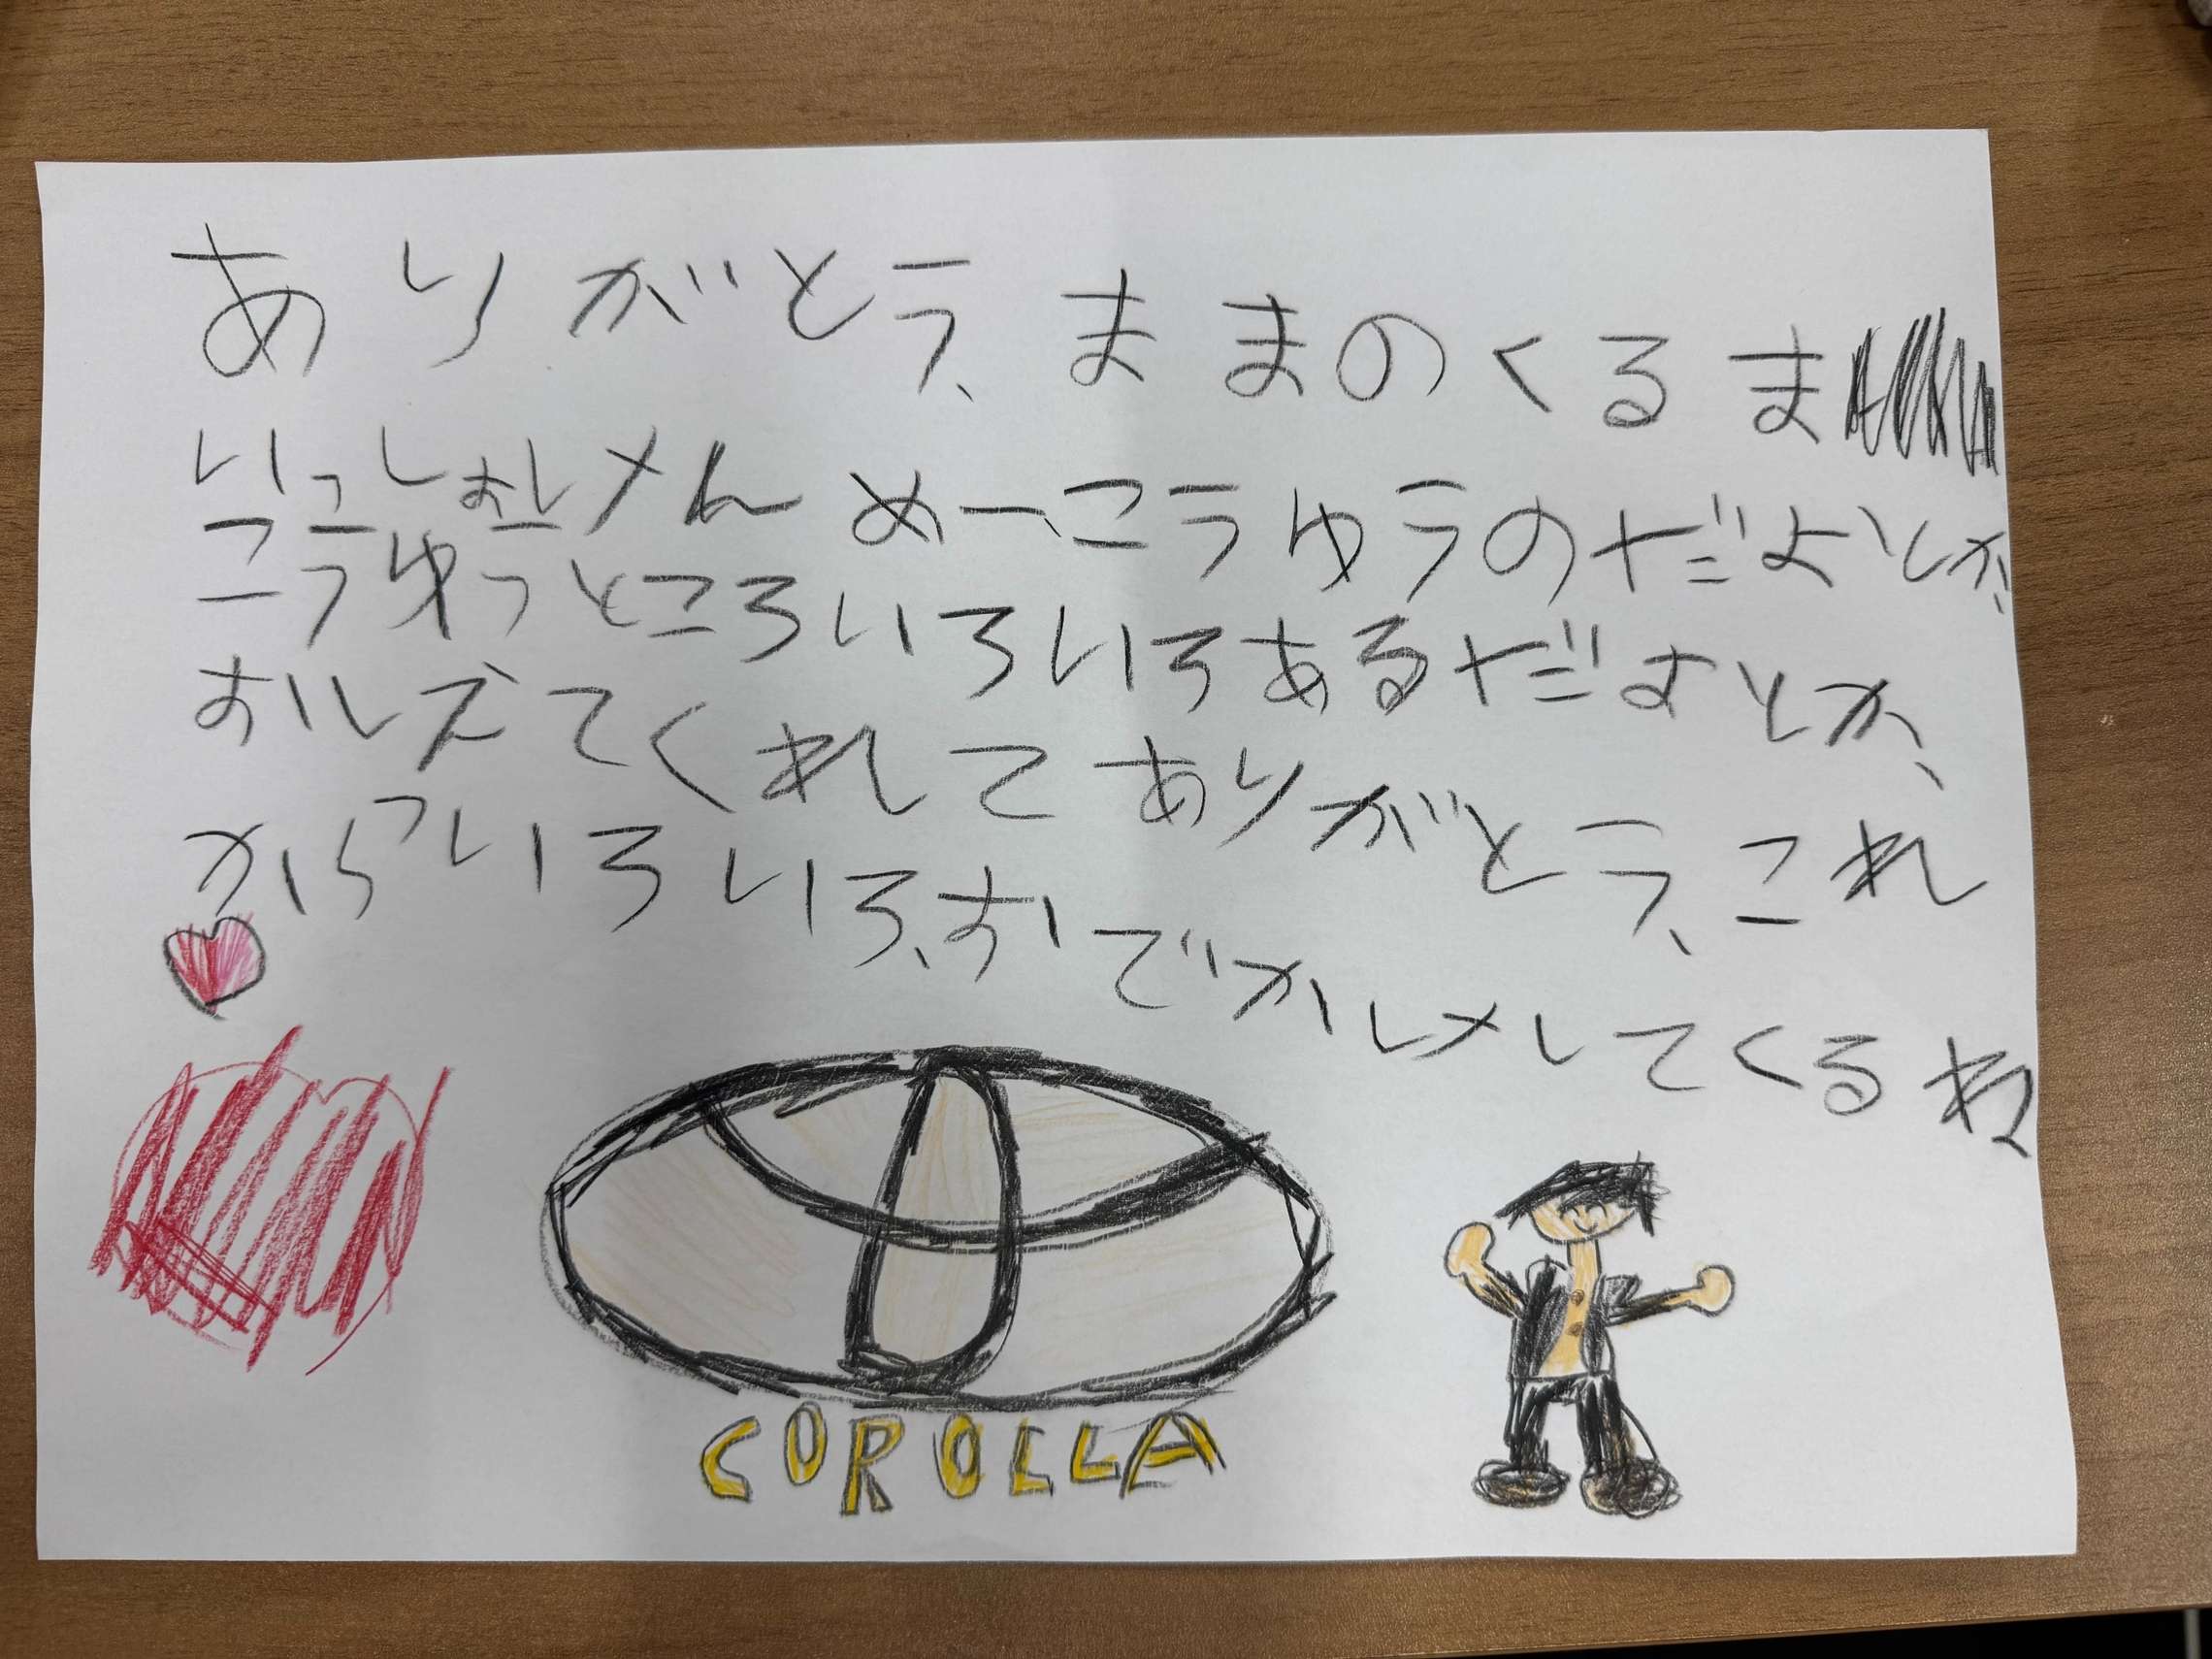 ありがとう、ままのくるま
いっしょおけんめー、こうゆうのだよとか、
こうゆうところいろいろあるだよとか、
おしえてくれてありがとう、これ
からいろいろ、おでかけしてくるね
COROLLA